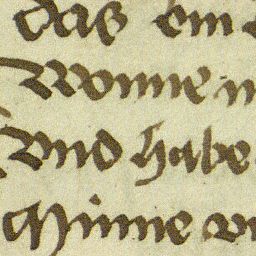 das ein
Wonne
Vnd habe
Minne